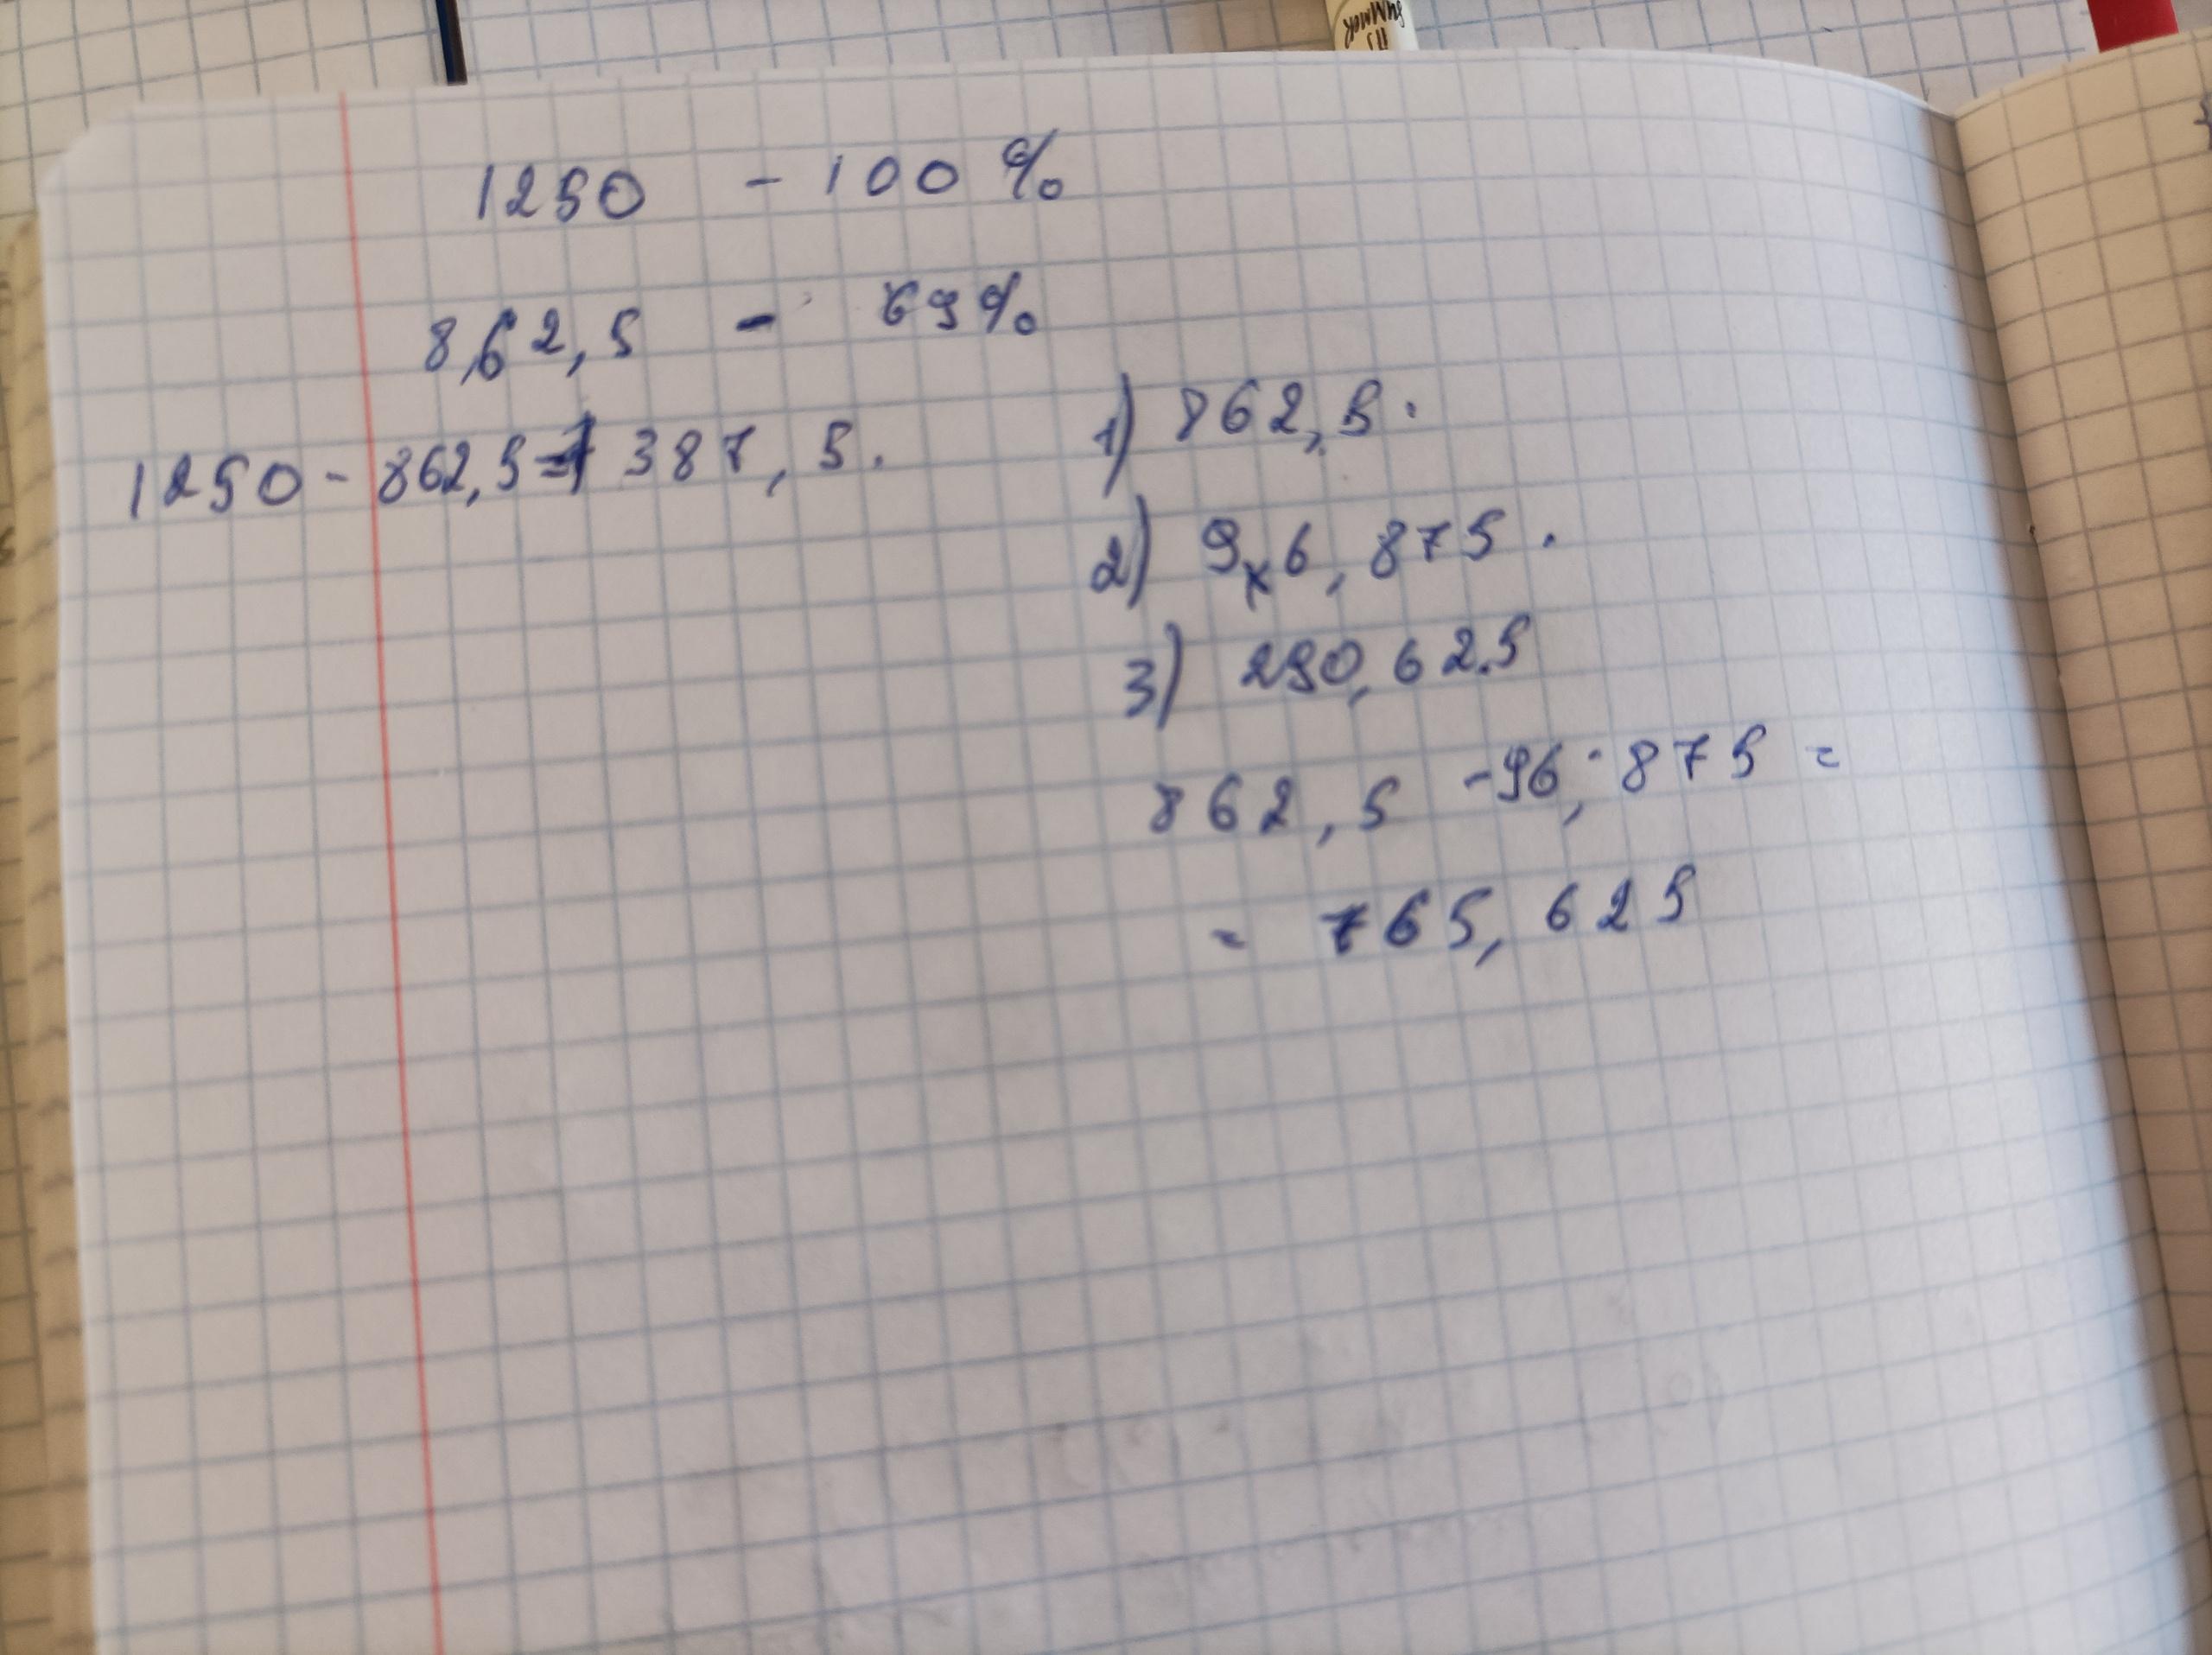 1250 - 100%
862,5 - 69%
1250 - 862,5 = 387,5.
1) 862,5.
2) 96,875.
3) 290,625
862,5 - 96,875 =
= 765,625
SUMMER